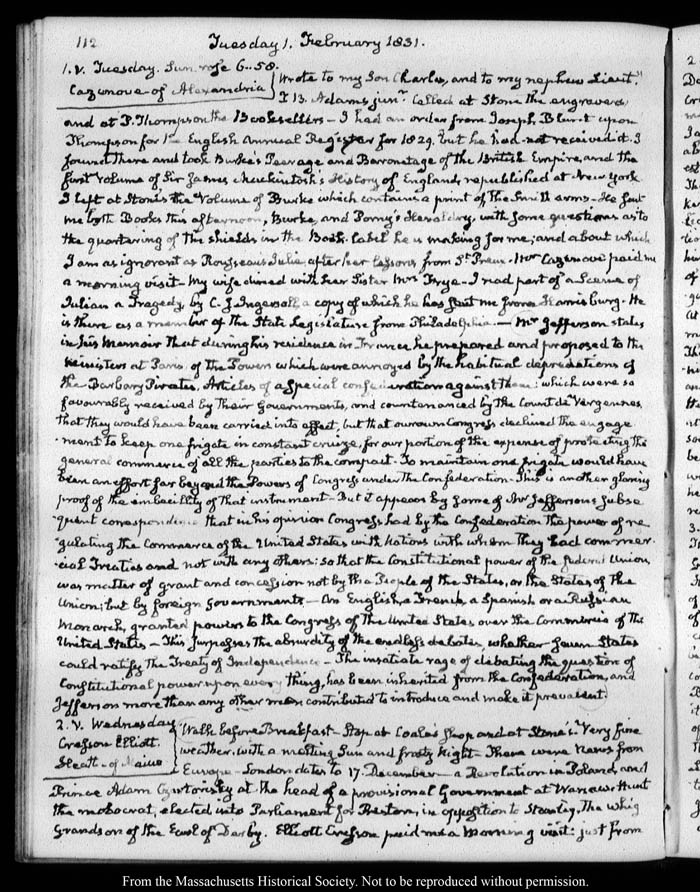 112
Tuesday 1. February 1831.
1. V. Tuesday. Sun rose 6..58.
Cazenove - of Alexandria
Wrote to my Son Charles, and to my nephew Lieut.t
T B. Adams junr. Called at Stone the engravers
and at P. Thompson the Booksellers - I had an order from Joseph Blunt upon
Thompson for the English Annual Register for 1829. but he had not received it. I
found there and took Burke's Peerage and Baronetage of the British Empire, and the
first volume of Sir James Mackintosh's History of England, republished at New York
I left at Stone's the Volume of Burke which contains a print of the Smith arms - He sent
me both Books this afternoon, Burke, and Porny's Heraldry, with some questions as to
the quartering of the shields in the Book-label he is making for me; and about which
I am as ignorant as Rousseau's Julie, after her lessons from St. Preux - Mr Cazenove paid me
a morning visit - My wife dined with her Sister Mrs Frye - I read part of a Scene of
Julian a Tragedy, by C. J. Ingersoll, a copy of which he has sent me from Harrisburg - He
is there as a member of the State Legislature from Philadelphia. - Mr Jefferson states
in his Memoir that during his residence in France he prepared and proposed to the
Ministers at Paris, of the Powers which were annoyed by the habitual depredations of
the Barbary Pirates, Articles of a Special confederation against them: which were so
favourably received by their Governments, and countenanced by the Count de Vergennes
that they would have been carried into effect, but that our own Congress declined the engage
-ment to keep one frigate in constant cruize, for our portion of the expense of protecting the
general commerce of all the parties to the compact - To maintain one frigate would have
been an effort far beyond the Powers of Congress under the Confederation - This is another glaring
proof of the imbecility of that instrument - But it appears by some of Mr Jefferson's subse
quent correspondence that in his opinion Congress had by the Confederation the power of re
gulating the Commerce of the United States with Nations with whom they had commer-
-cial Treaties and not with any others: so that the Constitutional power of the federal Union,
was matter of grant and concession not by the People of the States, or the States of the
Union; but by foreign Governments - An English, a French, a Spanish or a Russian
Monarch, granted powers to the Congress of the United States over the Commerce of the
United States - This surpasses the absurdity of the endless debates, whether seven States
could ratify the Treaty of Independence - The insatiate rage of debating the question of
Constitutional power upon every thing, has been inherited from the Confederation, and
Jefferson more than any other man contributed to introduce and make it prevalent
2. V. Wednesday
Cresson Elliott.
Heath - of Maine
Walk before Breakfast - Stop at Coale's shop and at Stone's. Very fine
weather, with a melting Sun and frosty Night - There were News from
Europe - London dates to 17. December - a Revolution in Poland, and
Prince Adam Czartorisky at the head of a provisional Government at Warsaw. Hunt
the mobocrat, elected into Parliament for Preston, in opposition to Stanley, the whig
Grandson of the Earl of Derby. Elliott Cresson paid me a Morning visit: just from
From the Massachusetts Historical Society. Not to be reproduced without permission.